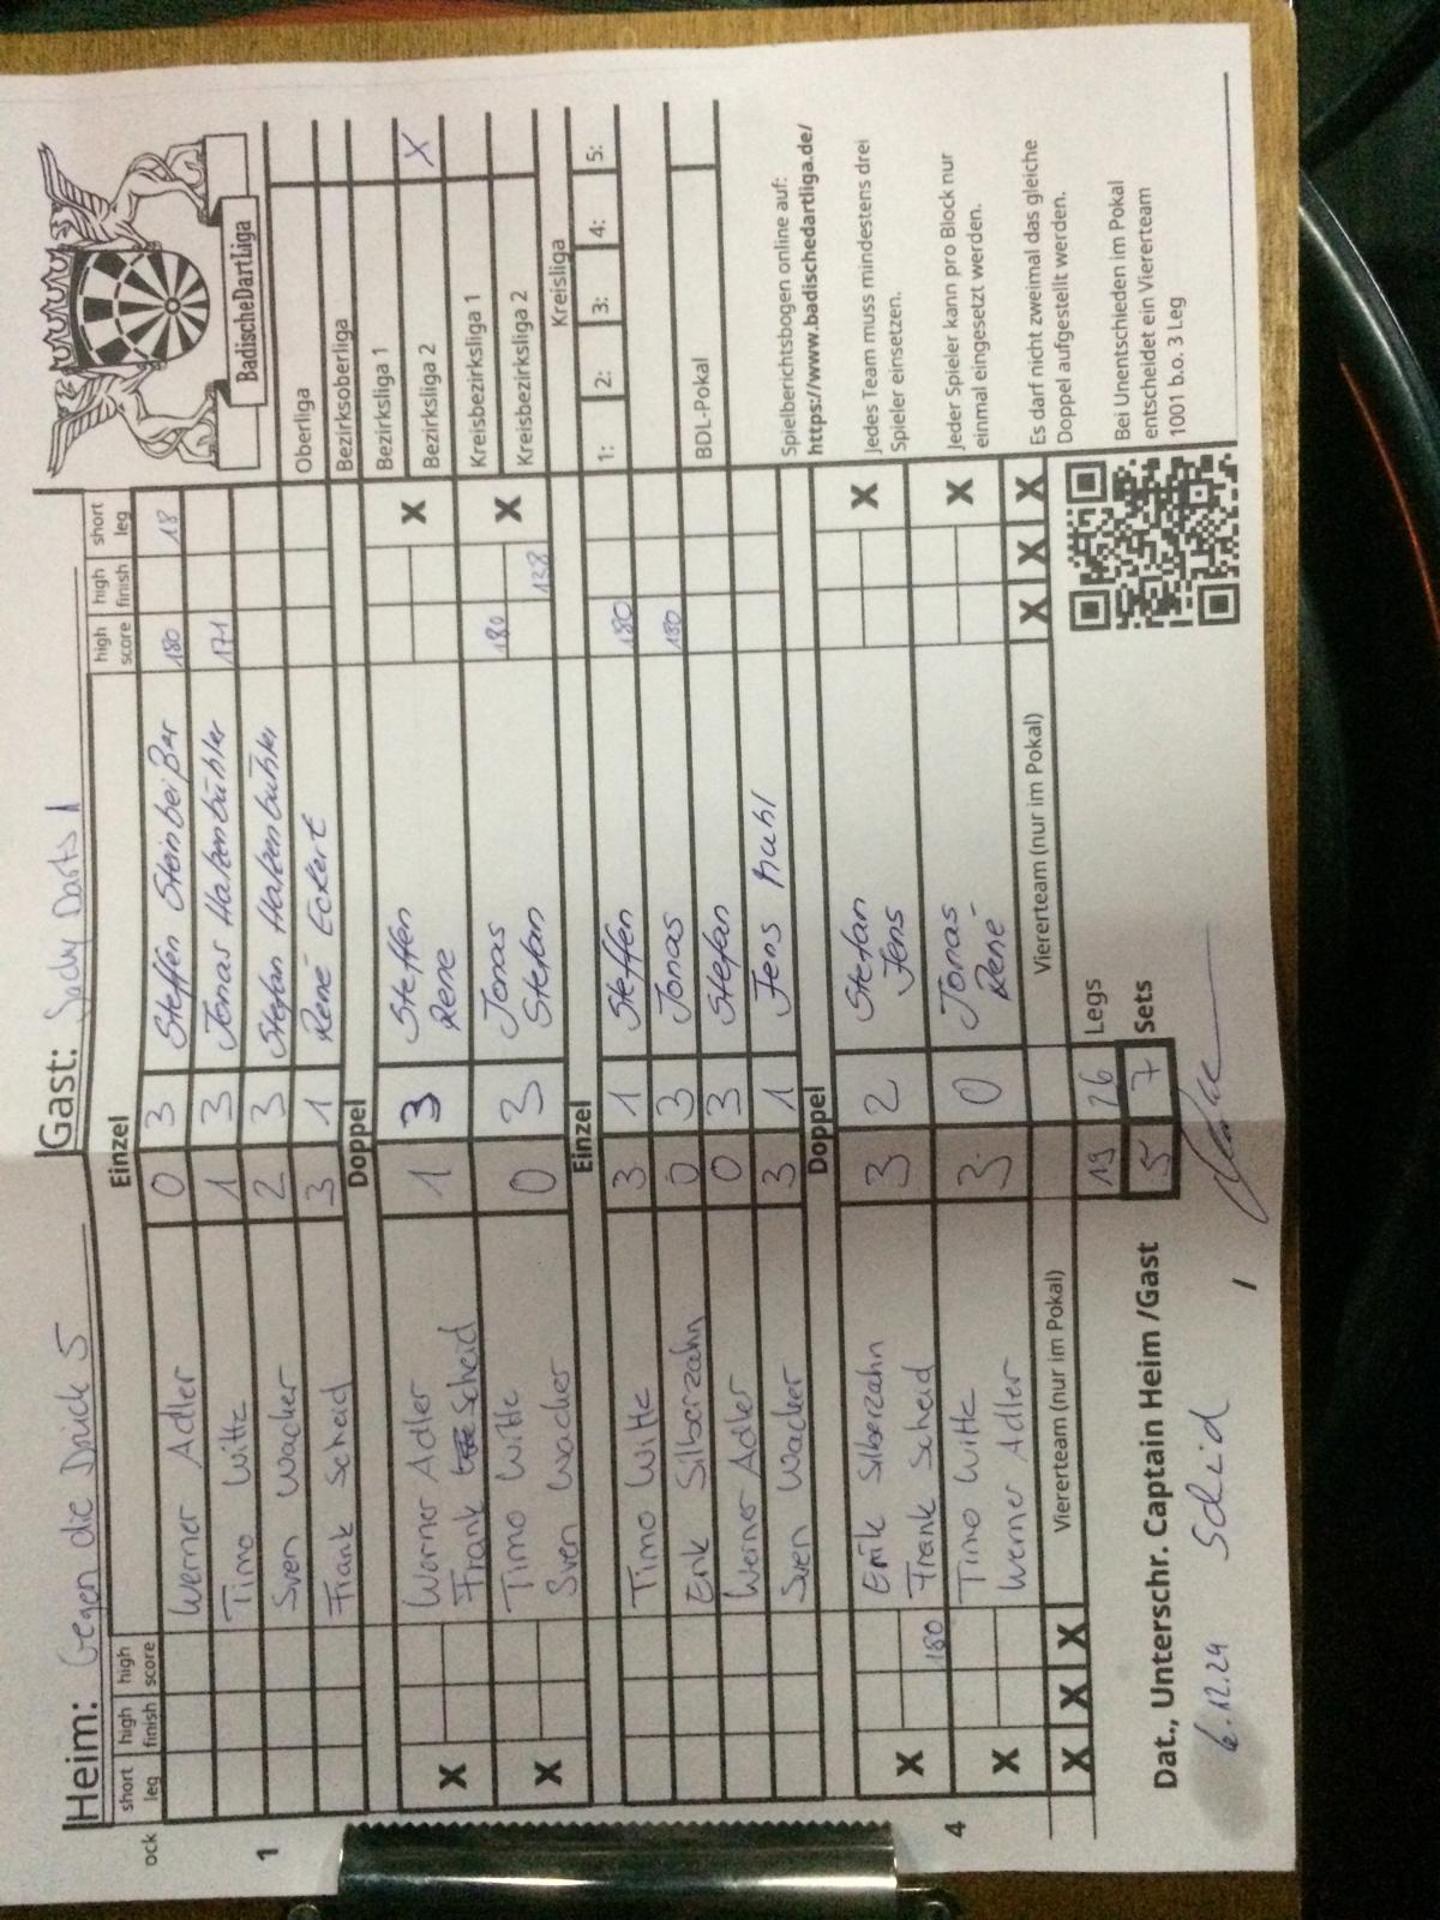 Heim: Gegen die Drück 5 Gast: Sady Darts 1
BadischeDartLiga
ock short leg high finish high score Einzel high score high finish short leg
Werner Adler 0 3 Steffen Steinbeißer 180 18
1 Timo Witte 1 3 Jonas Hatzenbühler 171
Sven Wacker 2 3 Stefan Hatzenbühler
Frank Scheid 3 1 René Eckert
Doppel
X Werner Adler 1 3 Steffen X
Frank Scheid Rene
X Timo Witte 0 3 Jonas 180 X
Sven Wacker Stefan 138
Einzel
Timo Witte 3 1 Steffen 180
Erik Silberzahn 0 3 Jonas 180
Werner Adler 0 3 Stefan
Sven Wacker 3 1 Jens Muhl
Doppel
X Erik Silberzahn 3 2 Stefan X
180 Frank Scheid Jens
4 X Timo Witte 3 0 Jonas X
Werner Adler René
X X X Viererteam (nur im Pokal) Viererteam (nur im Pokal) X X X
19 26 Legs
Dat., Unterschr. Captain Heim /Gast 5 7 Sets
6.12.24 Scheid
Oberliga
Bezirksoberliga
Bezirksliga 1
Bezirksliga 2 X
Kreisbezirksliga 1
Kreisbezirksliga 2
Kreisliga
1: 2: 3: 4: 5:
BDL-Pokal
Spielberichtsbogen online auf:
https://www.badischedartliga.de/
Jedes Team muss mindestens drei
Spieler einsetzen.
Jeder Spieler kann pro Block nur
einmal eingesetzt werden.
Es darf nicht zweimal das gleiche
Doppel aufgestellt werden.
Bei Unentschieden im Pokal
entscheidet ein Viererteam
1001 b.o. 3 Leg